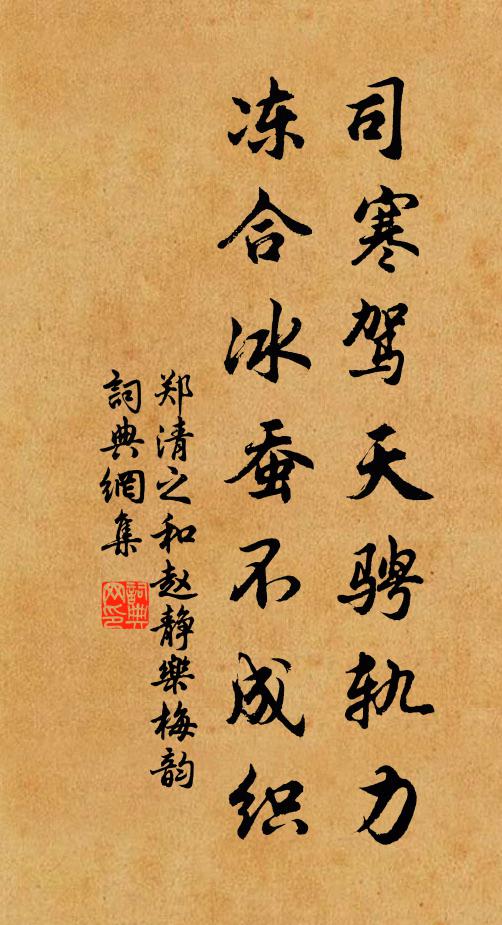 司寒驾天骋轨力
冻合冰蚕不成织
郑清之和赵静樂梅韵
詞典網集
詞典
网印